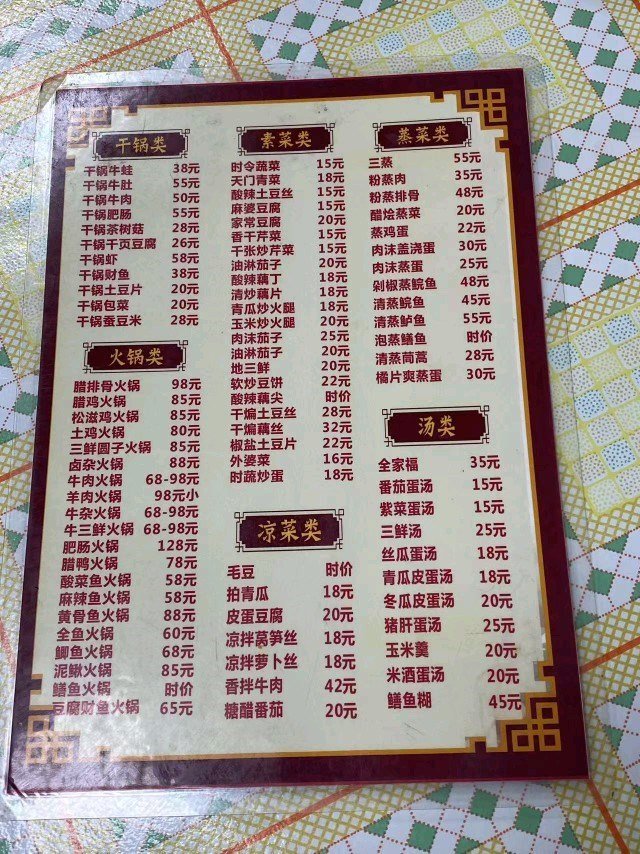 干锅类
干锅牛蛙 38元
干锅牛肚 55元
干锅牛肉 50元
干锅肥肠 55元
干锅茶树菇 28元
干锅干页豆腐 26元
干锅虾 58元
干锅财鱼 38元
干锅土豆片 20元
干锅包菜 20元
干锅蚕豆米 28元
火锅类
腊排骨火锅 98元
腊鸡火锅 85元
松滋鸡火锅 85元
土鸡火锅 80元
三鲜圆子火锅 85元
卤杂火锅 88元
牛肉火锅 68-98元
羊肉火锅 98元小
牛杂火锅 68-98元
牛三鲜火锅 68-98元
肥肠火锅 128元
腊鸭火锅 78元
酸菜鱼火锅 58元
麻辣鱼火锅 58元
黄骨鱼火锅 88元
全鱼火锅 60元
鲫鱼火锅 68元
泥鳅火锅 85元
鳝鱼火锅 时价
豆腐财鱼火锅 65元
素菜类
时令蔬菜 15元
天门青菜 18元
酸辣土豆丝 15元
麻婆豆腐 15元
家常豆腐 20元
香干芹菜 15元
千张炒芹菜 15元
油淋茄子 20元
酸辣藕丁 18元
清炒藕片 18元
青瓜炒火腿 18元
玉米炒火腿 20元
肉沫茄子 25元
油淋茄子 20元
地三鲜 20元
软炒豆饼 22元
酸辣藕尖 时价
干煸土豆丝 28元
干煸藕丝 32元
椒盐土豆片 22元
外婆菜 16元
时蔬炒蛋 18元
凉菜类
毛豆 时价
拍青瓜 18元
皮蛋豆腐 20元
凉拌莴笋丝 18元
凉拌萝卜丝 18元
香拌牛肉 42元
糖醋番茄 20元
蒸菜类
三蒸 55元
粉蒸肉 35元
粉蒸排骨 48元
醋烩蒸菜 20元
蒸鸡蛋 22元
肉沫盖浇蛋 30元
肉沫蒸蛋 25元
剁椒蒸鲩鱼 48元
清蒸鲩鱼 45元
清蒸鲈鱼 55元
泡蒸鳝鱼 时价
清蒸茼蒿 28元
橘片爽蒸蛋 30元
汤类
全家福 35元
番茄蛋汤 15元
紫菜蛋汤 15元
三鲜汤 25元
丝瓜蛋汤 18元
青瓜皮蛋汤 18元
冬瓜皮蛋汤 20元
猪肝蛋汤 25元
玉米羹 20元
米酒蛋汤 20元
鳝鱼糊 45元